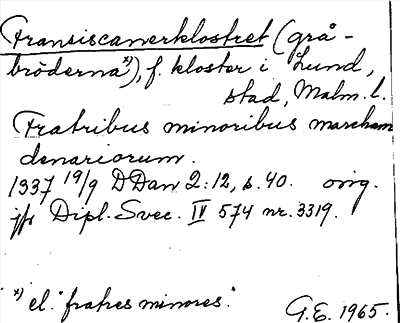 Fransiscanerklostret (grå-
bröderna*), f. kloster i Lund,
stad, Malm. l.
Fratribus minoribus marcham
denariorum.
1337 19/9 DDan 2:12, s. 40. orig.
jfr Dipl. Svec. IV 574 nr. 3319.
*) el. "fratres minores".
G.E. 1965.